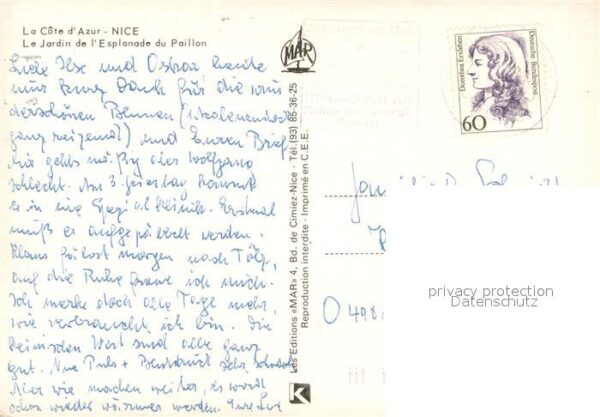 La Côte d'Azur - NICE
Le Jardin de l'Esplanade du Paillon
Liebe Ilse und Ostraa heute
nur kurz Dank für die wun
derschönen Blumen
ganz reizend) und Euren Brief
Mir gehts mäßig aber Wolfgang
schlecht. Am 3. Feiertag kommt
er in eine Spezialklinik. Erstmal
muß er aufgepäppelt werden.
Klaus fährt morgen nach Tölz,
auf die Ruhe freue ich mich.
Ich merke doch alle Tage mehr,
wie verbraucht ich bin. Die
sind alle ganz
gut. Nur Puls + Blutdruck sehr schwach
Aber wie machen weiter, es wird
schon wieder wärmer werden. Eure
MAR
Les Editions «MAR» 4, Bd. de Cimiez-Nice - Tél. (93) 85-36-25
Reproduction interdite - Imprimé en C.E.E.
K
Dorothea Erxleben
Deutsche Bundespost
60
privacy protection
Datenschutz